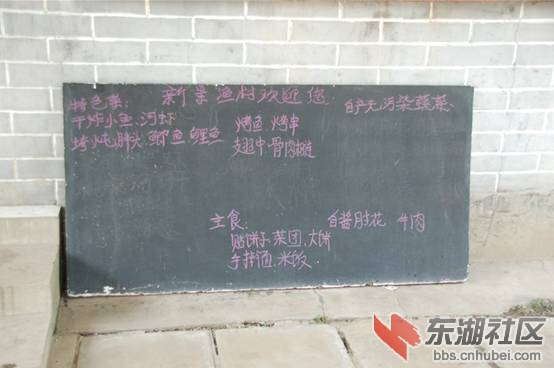 新景渔村欢迎您
特色菜:
自产无污染蔬菜
干炸小鱼.河虾
烤鱼 烤串
炖胖头 鲫鱼 鲤鱼
翅中 骨肉相连
主食.
自酱肘花 牛肉
贴饼子.菜团.大饼
手擀面.米饭
东湖社区
bbs.cnhubei.com